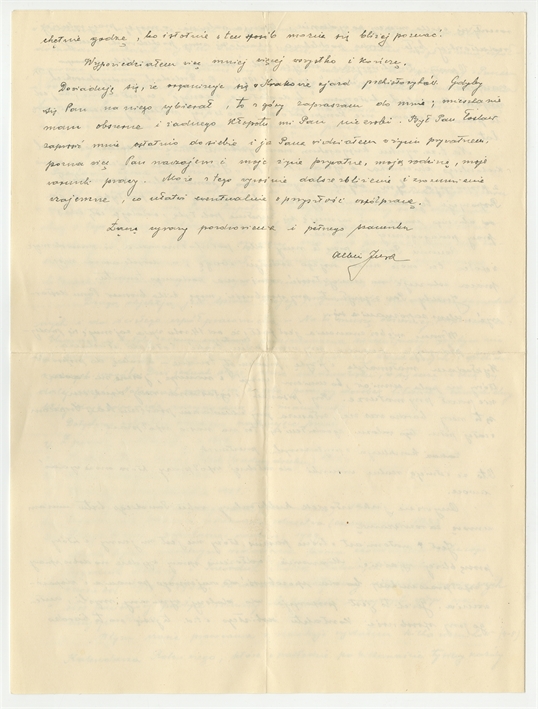 chętnie godzę, bo istotnie w ten sposób można się bliżej poznać.
Wypowiedziałem więc mniej więcej wszystko i kończę.
Dowiaduję się, że organizuje się w Krakowie zjazd prehistoryków. Gdyby
się Pan na niego wybierał, to z góry zapraszam do mnie; mieszkanie
mam obszerne i żadnego kłopotu mi Pan nie zrobi. Był Pan łaskaw
zaprosić mnie ostatnio do siebie i ja Pana widziałem w życiu prywatnem.
pozna więc Pan nawzajem i moje życie prywatne, moją rodzinę, moje
warunki pracy. Może z tego wyniknie dalsze zbliżenie i zrozumienie
wzajemne, co ułatwi ewentualnie w przyszłości współpracę.
Łączę wyrazy pozdrowienia i pełnego szacunku
Albin Jura